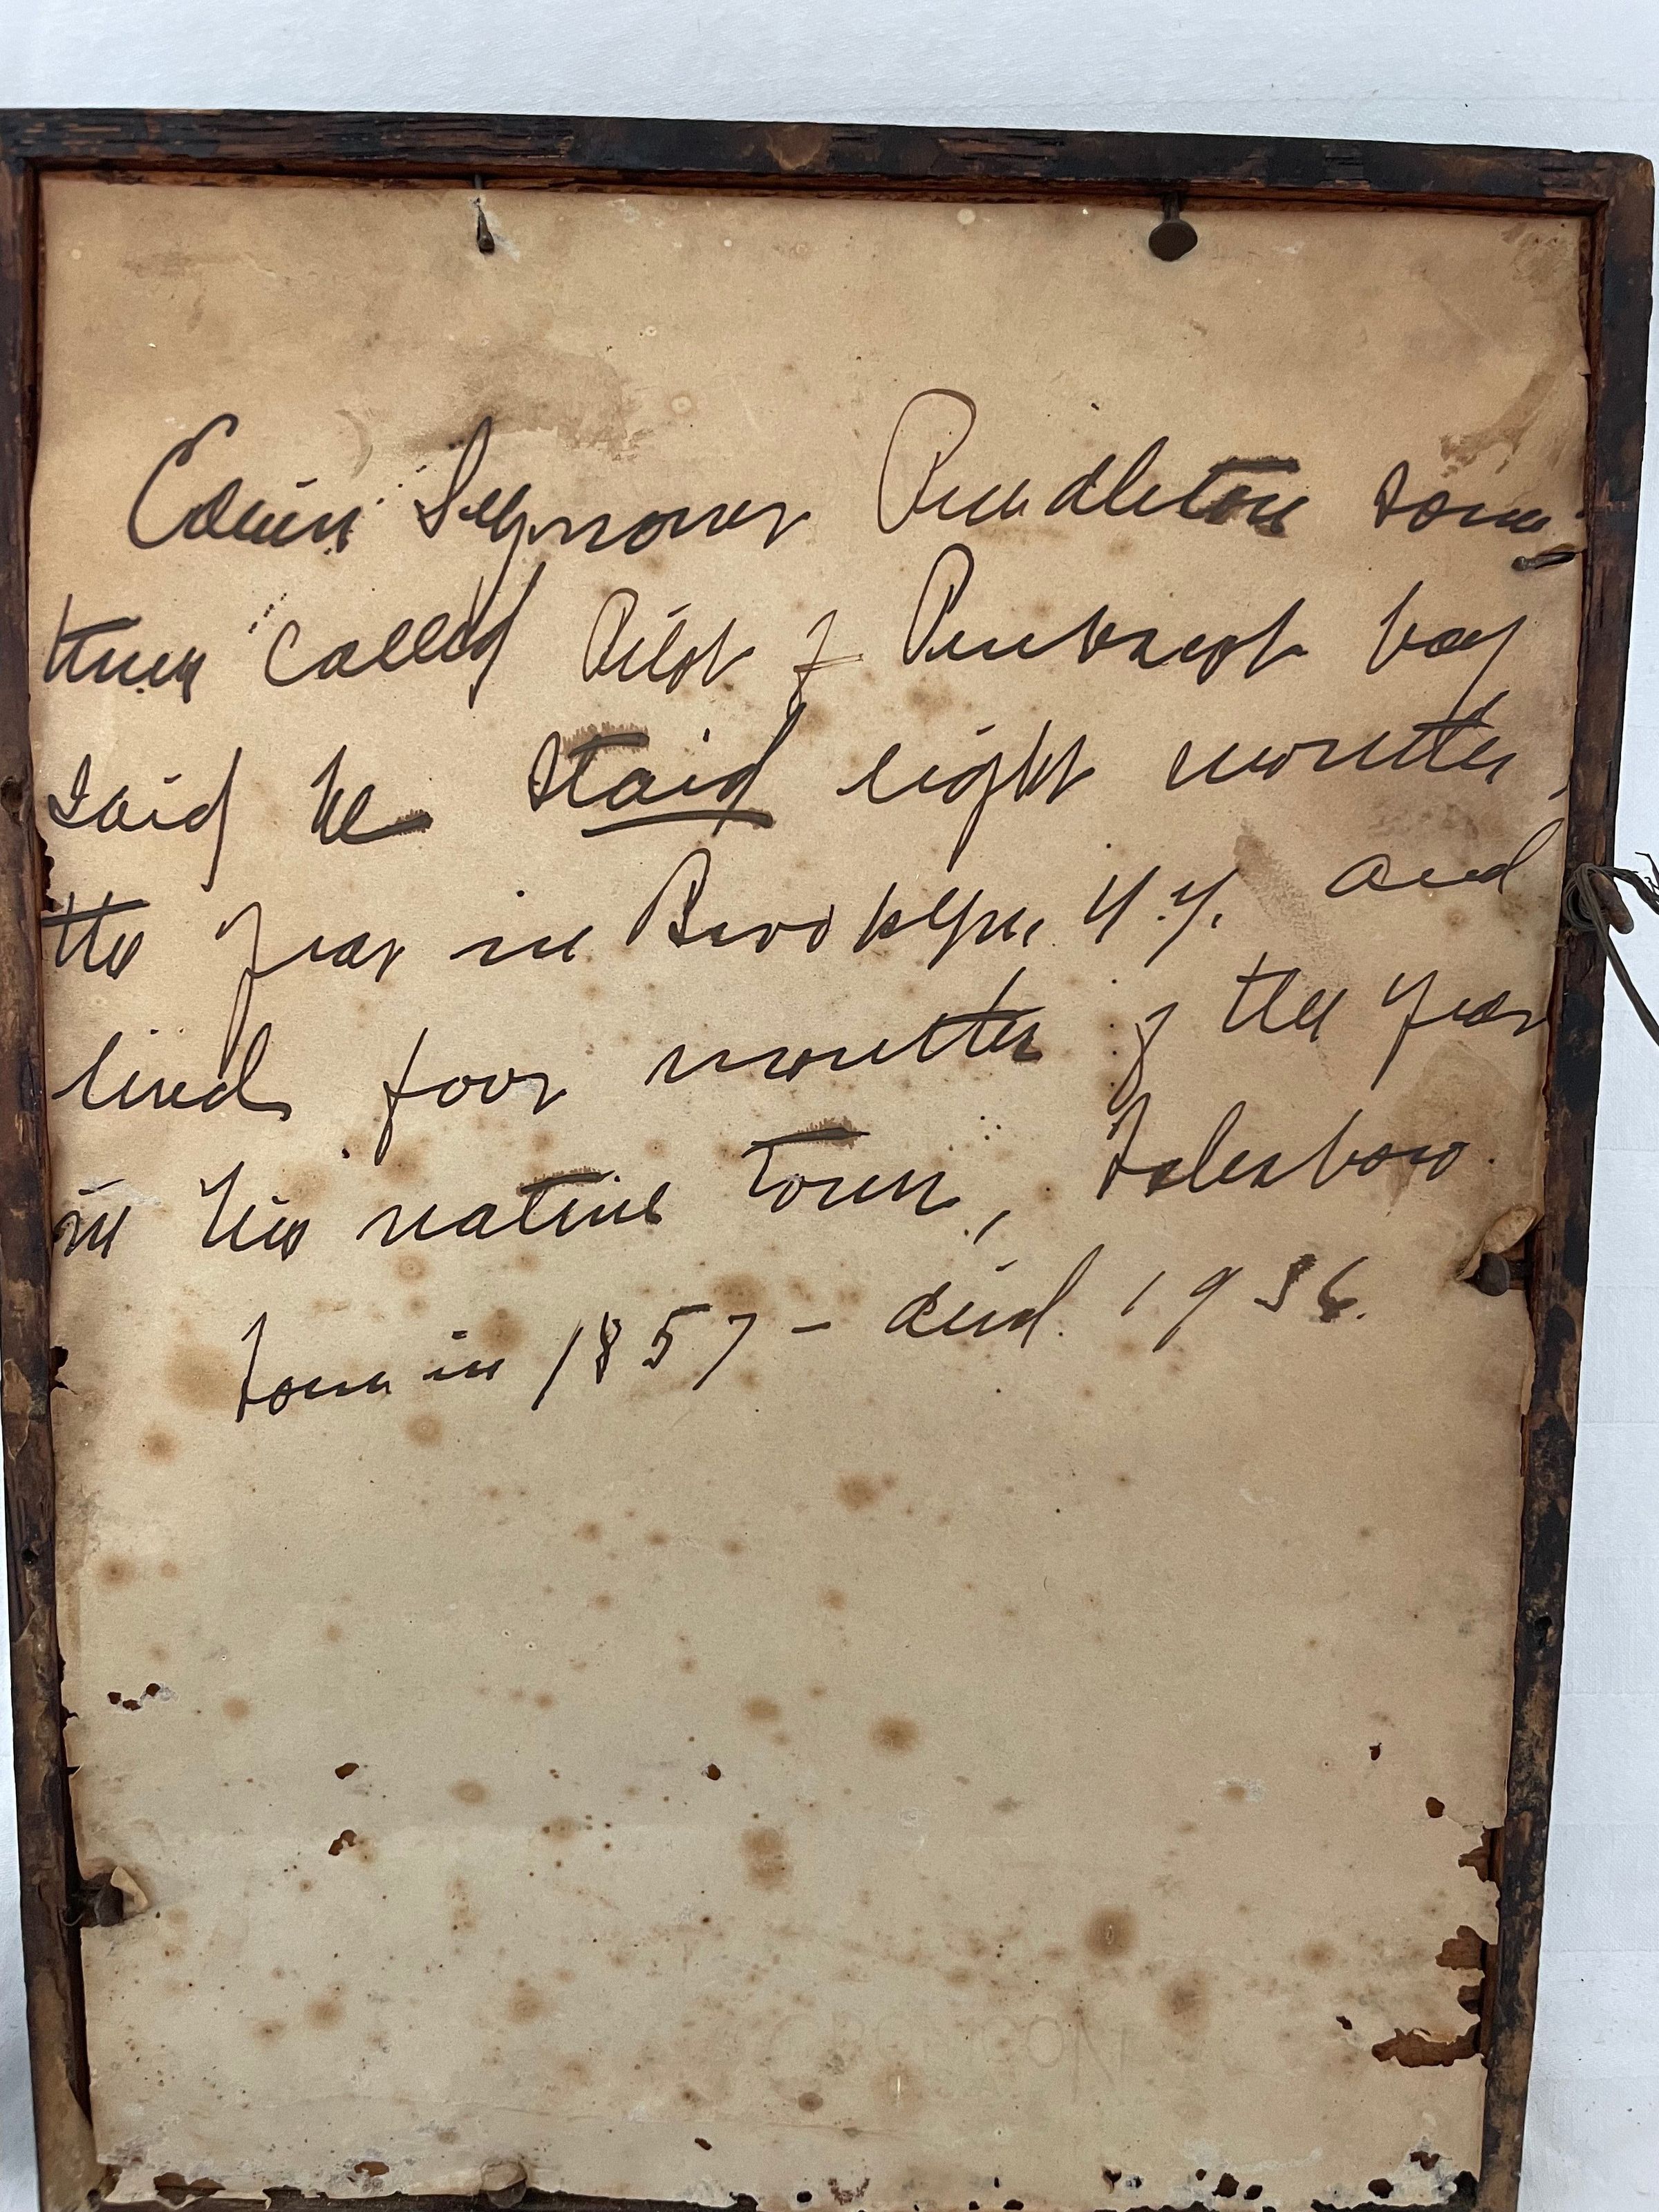 Edwin Seymour Pendleton some-
times called Pilot of Penobscot bay
said he staid eight months,
the year in Brooklyn N.Y. and
lived four months of the year
in his native town, Islesboro.
born in 1857 – died. 1936.